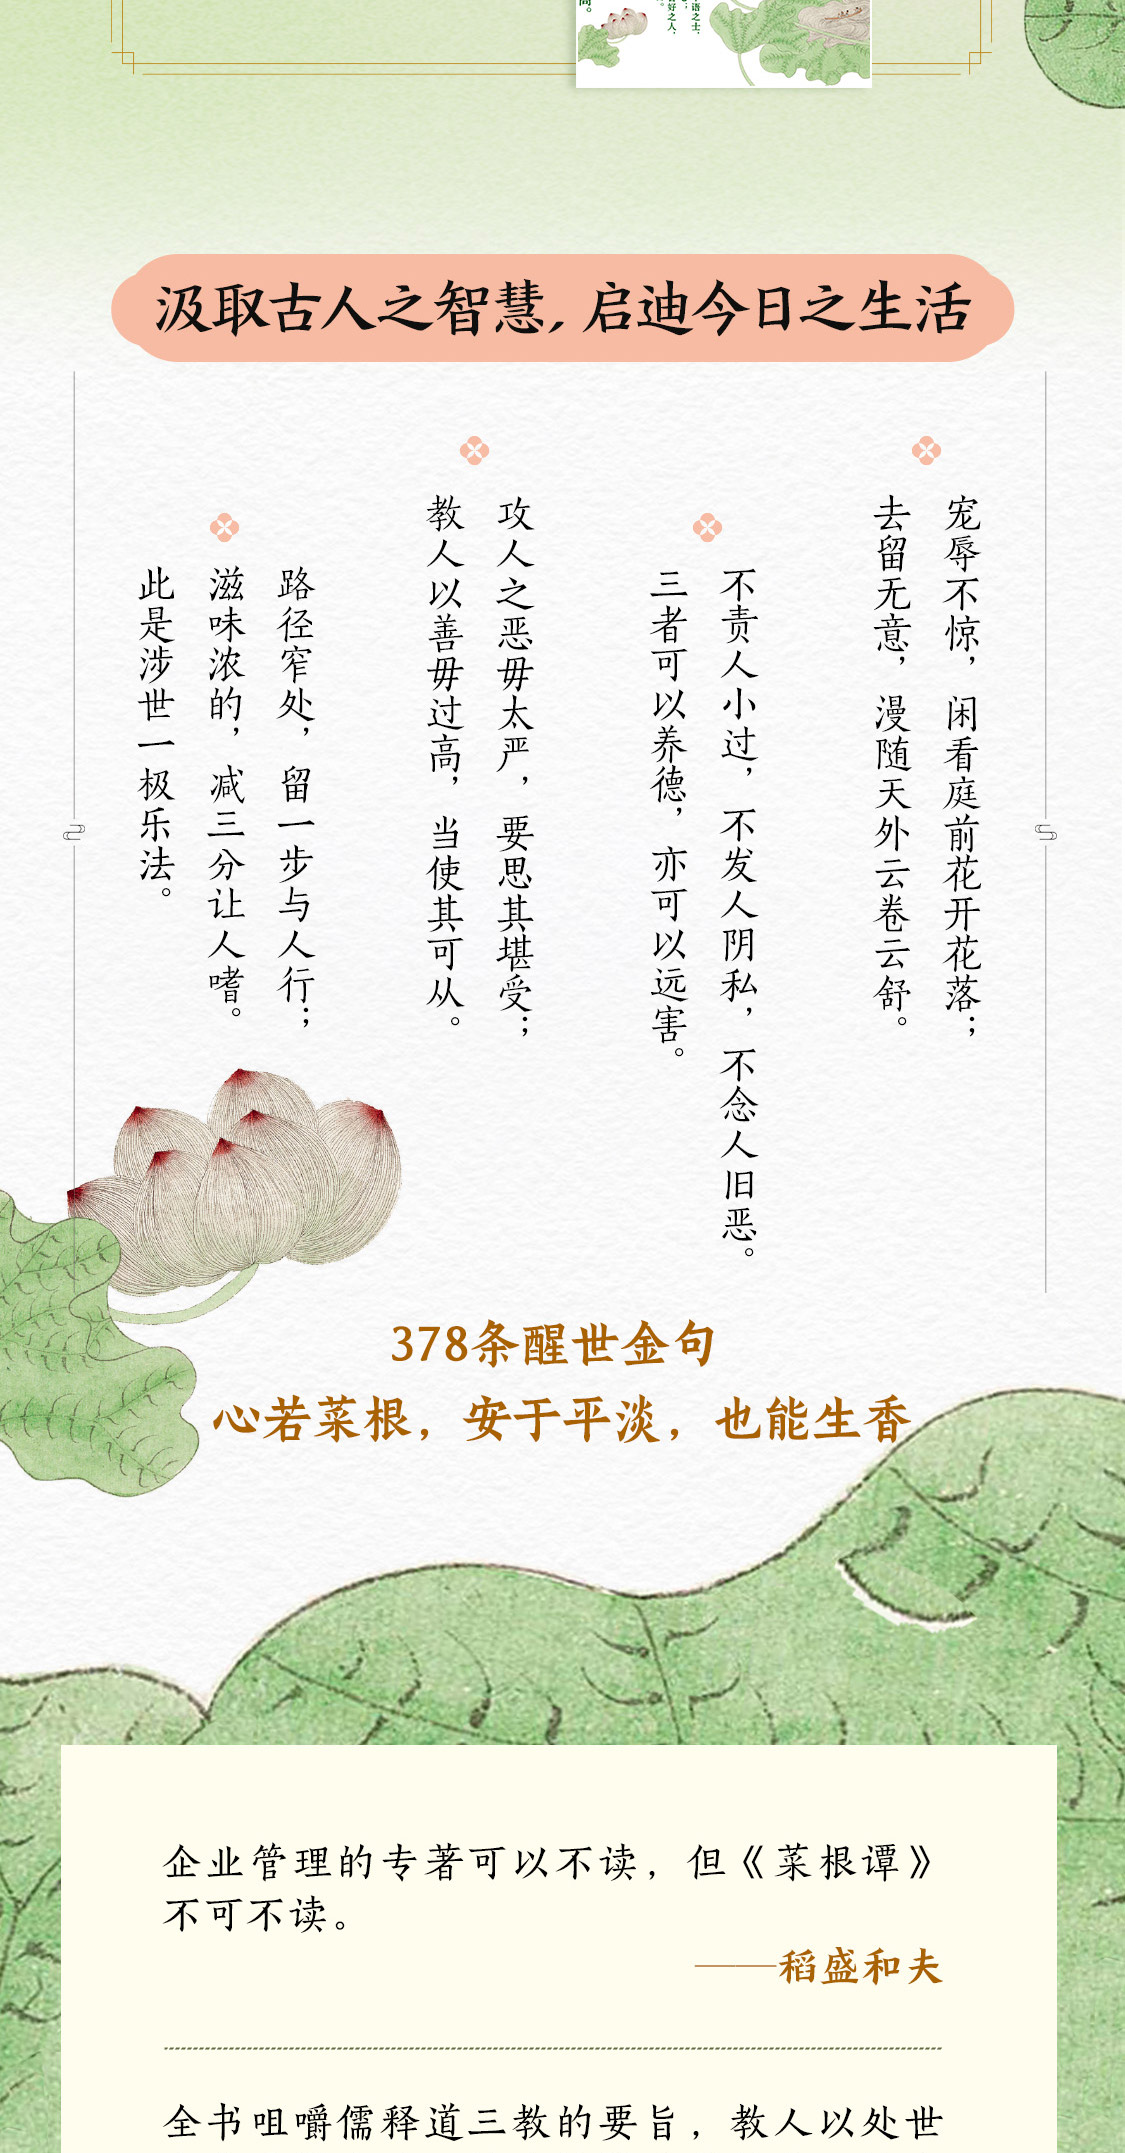 高。
好之人，
语之士，
汲取古人之智慧，启迪今日之生活
宠辱不惊，闲看庭前花开花落；
去留无意，漫随天外云卷云舒。
不责人小过，不发人阴私，不念人旧恶。
三者可以养德，亦可以远害。
攻人之恶毋太严，要思其堪受；
教人以善毋过高，当使其可从。
路径窄处，留一步与人行；
滋味浓的，减三分让人嗜。
此是涉世一极乐法。
378条醒世金句
心若菜根，安于平淡，也能生香
企业管理的专著可以不读，但《菜根谭》
不可不读。
——稻盛和夫
全书咀嚼儒释道三教的要旨，教人以处世